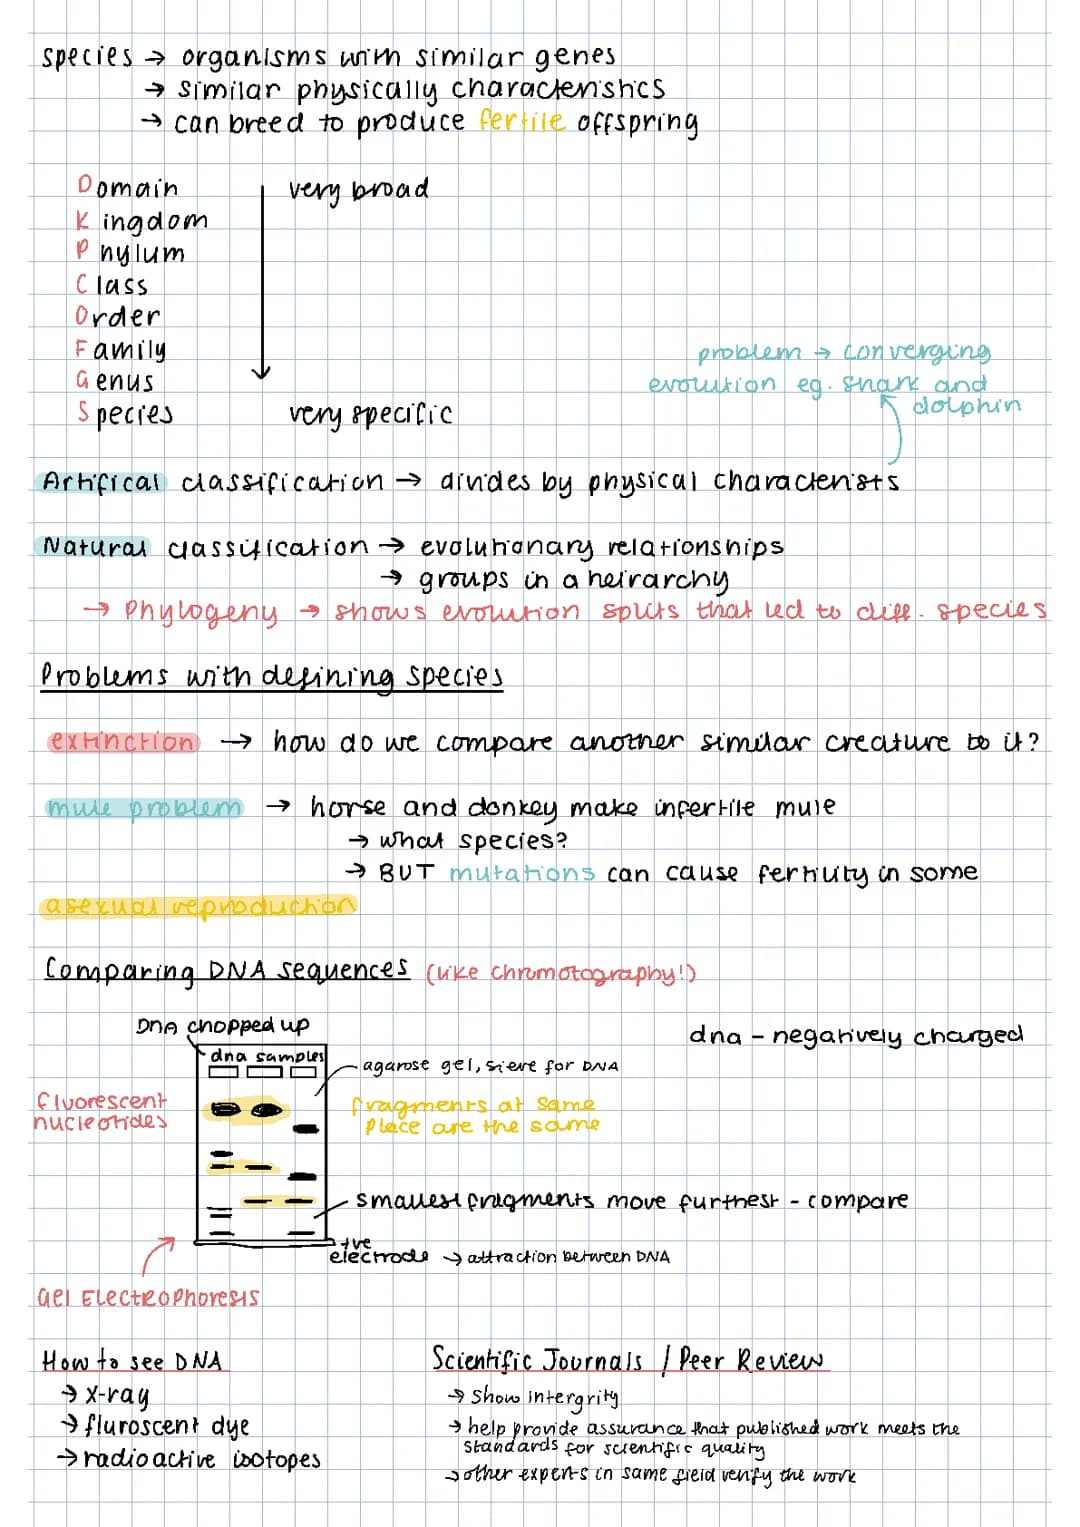 species → organisms with similar genes
→ similar physically characteristics
→ can breed to produce fertile offspring
Domain
very broad
Kingdom
Phylum
Class
Order
Family
Genus
Species
very specific
problem → converging
evolution eg. shark and
dolphin
Artifical classification → divides by physical characterists
Natural classification → evolutionary relationships
→ groups in a heirarchy
→ Phylogeny → shows evolution splits that led to diff. species
Problems with defining species
extinction → how do we compare another similar creature to it?
mule problem → horse and donkey make infertile mule
→ what species?
→ BUT mutations can cause fertility in some
asexual reproduction
Comparing DNA sequences (like chromotography!)
DNA chopped up
dna - negatively charged
dna samples
agarose gel, sieve for DNA
fluorescent
nucleotides
fragments at same
place are the same
smallest fragments move furthest - compare
+ve
electrode → attraction between DNA
Gel Electrophoresis
How to see DNA
→ x-ray
→ fluroscent dye
→ radioactive isotopes
Scientific Journals / Peer Review
→ show intergrity
→ help provide assurance that published work meets the
standards for scientific quality
→ other experts in same field verify the work